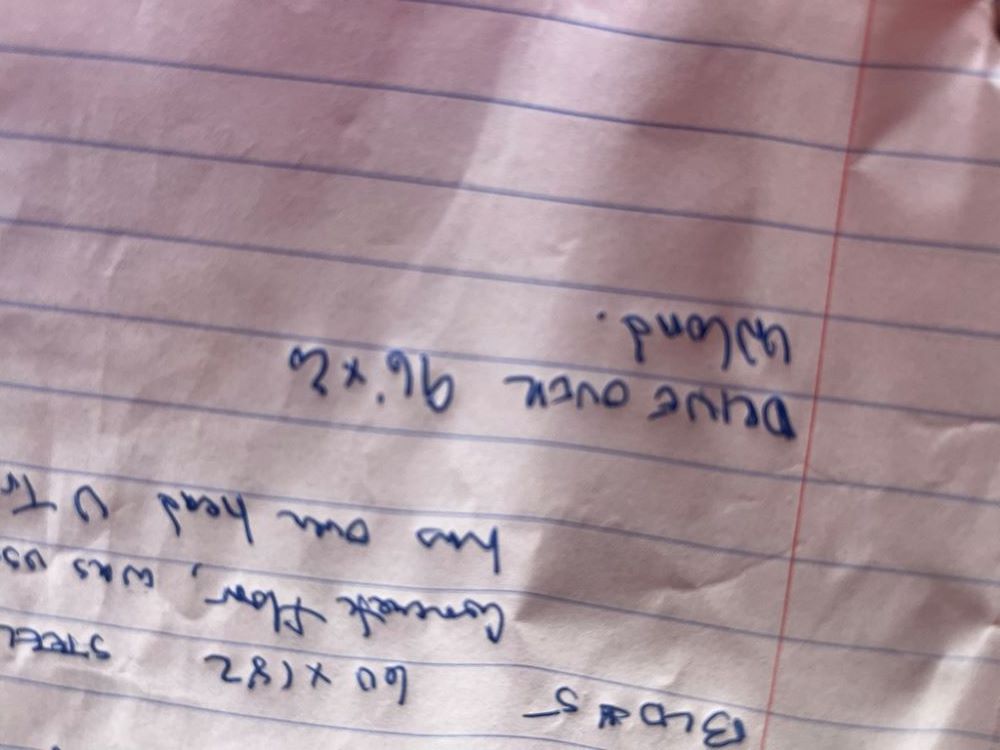 BLD #5 60 x 182 STEEL
Concrete floor, was us
has over head U Tr
DRIVE OVER 96' x
Unload.